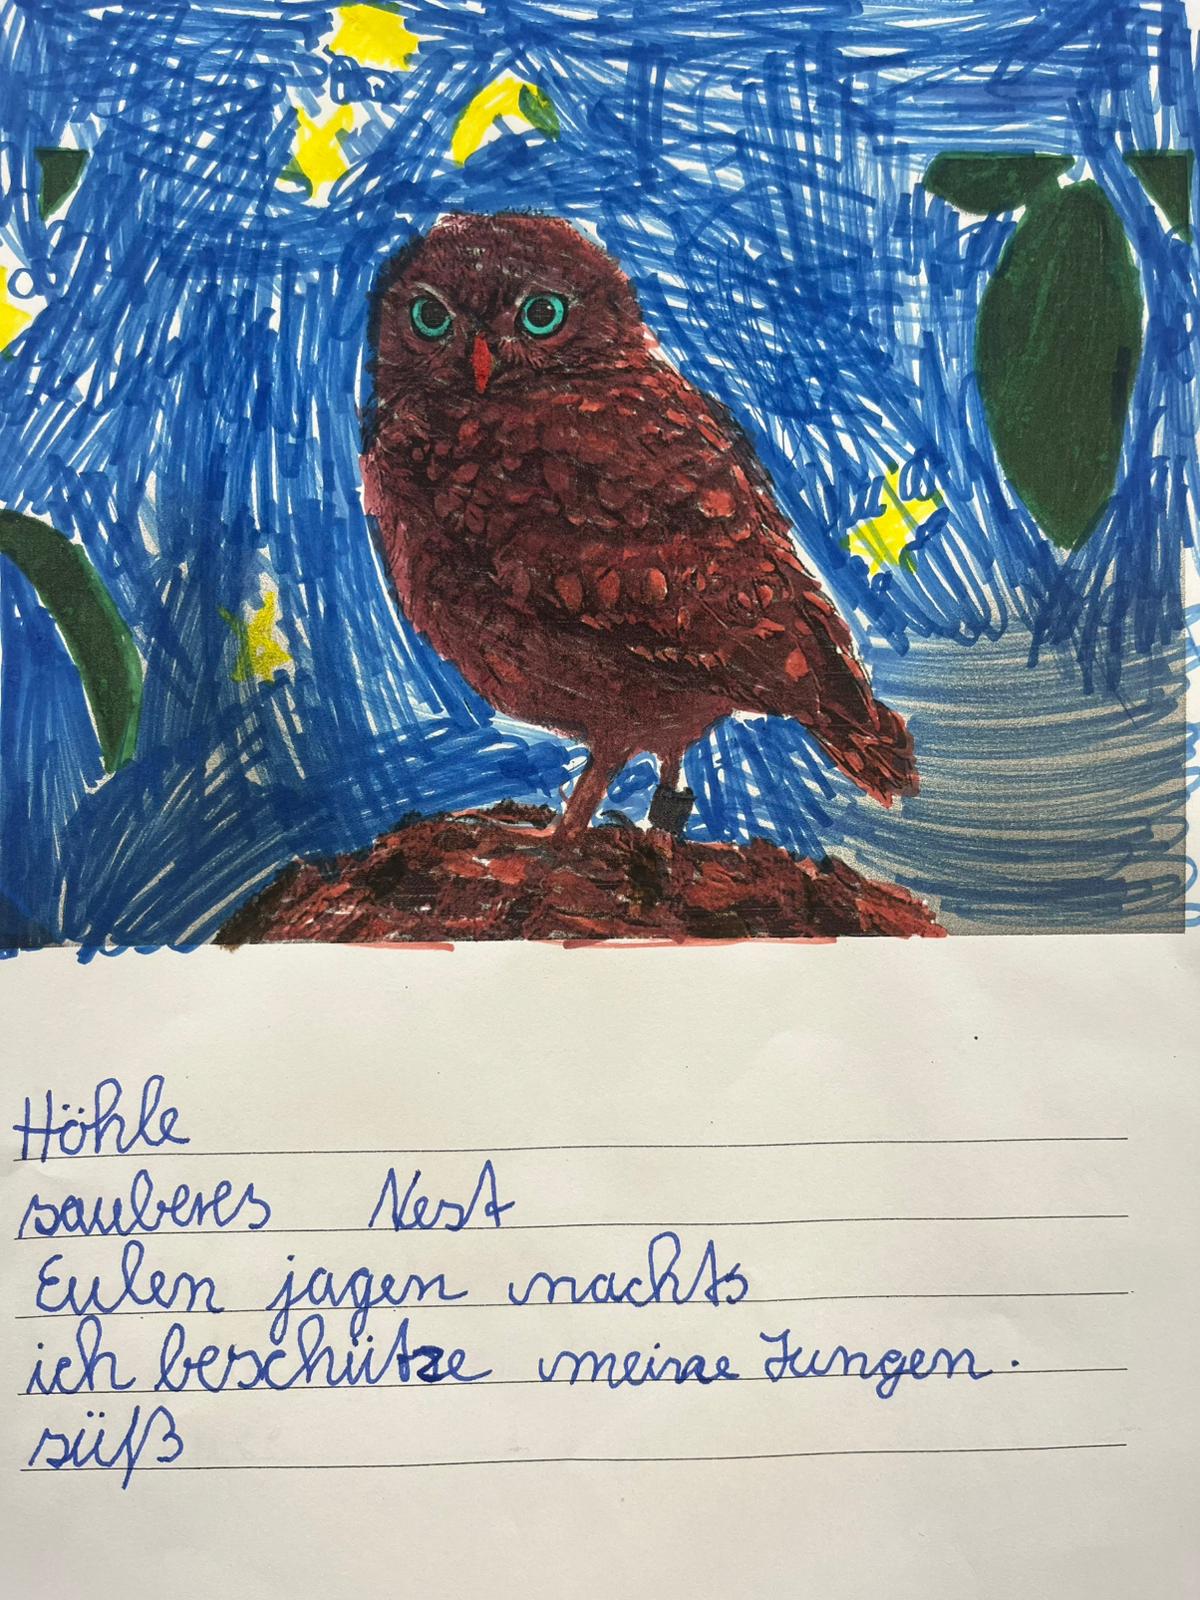 Höhle
sauberes Nest
Eulen jagen nachts
ich beschütze meine Jungen.
süß